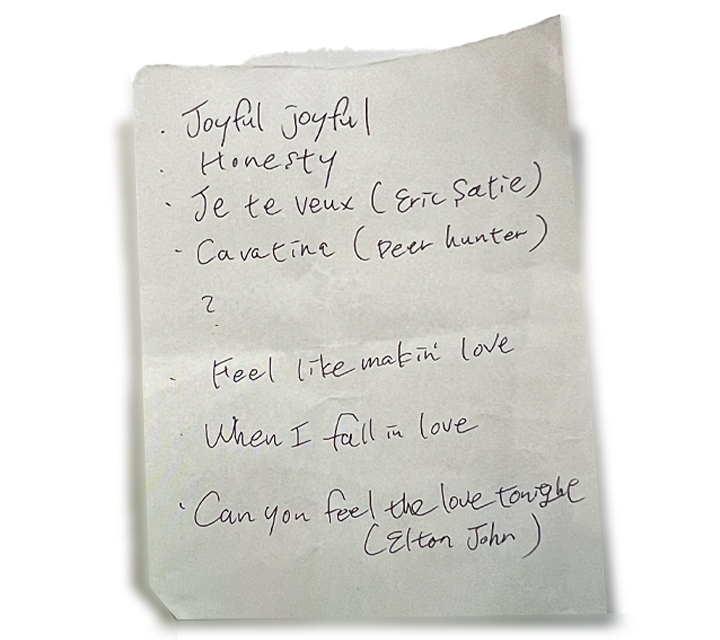 · Joyful joyful
· Honesty
· Je te veux (Eric Satie)
- Cavatina (Deer hunter)
?
· Feel like makin' love
· When I fall in love
· Can you feel the love tonight
(Elton John)